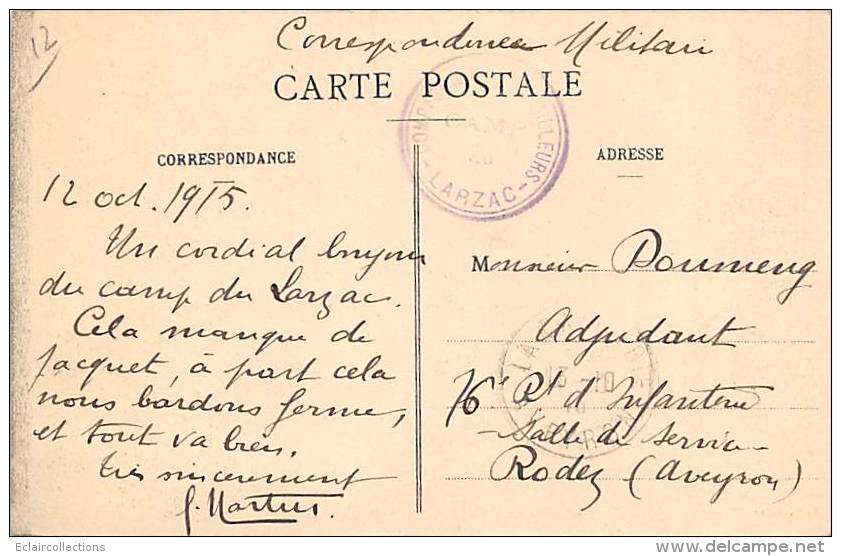 12
Correspondance Militair
CARTE POSTALE
CAMP
LLEURS - LARZAC -
CORRESPONDANCE
ADRESSE
12 oct. 1915.
Un cordial bonjour
du camp du Larzac.
Cela manque de
jacquet, à part cela
nous bardons ferme,
et tout va bien.
Très sincèrement
Monsieur Doumeng
Adjudant
76e Rt d'Infanterie
- Salle de service -
Rodez (Aveyron)
13 - 10
Eclaircollections
www.delcampe.net